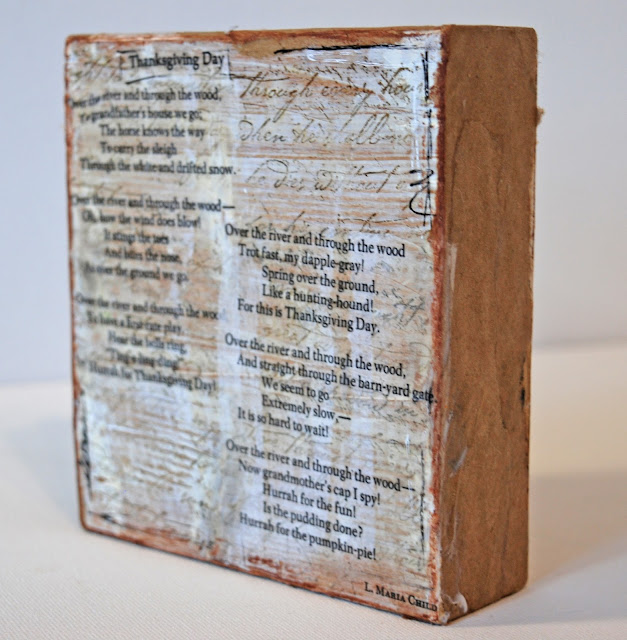 Thanksgiving Day
Over the river and through the wood,
To grandfather's house we go;
The horse knows the way
To carry the sleigh
Through the white and drifted snow.
Over the river and through the wood—
Oh, how the wind does blow!
It stings the toes
And bites the nose,
As over the ground we go.
Over the river and through the wood
To have a first-rate play.
Hear the bells ring,
Hurrah for Thanksgiving Day!
Over the river and through the wood
Trot fast, my dapple-gray!
Spring over the ground,
Like a hunting-hound!
For this is Thanksgiving Day.
Over the river and through the wood,
And straight through the barn-yard gate.
We seem to go
Extremely slow,—
It is so hard to wait!
Over the river and through the wood—
Now grandmother's cap I spy!
Hurrah for the fun!
Is the pudding done?
Hurrah for the pumpkin-pie!
L. Maria Child
through every hour